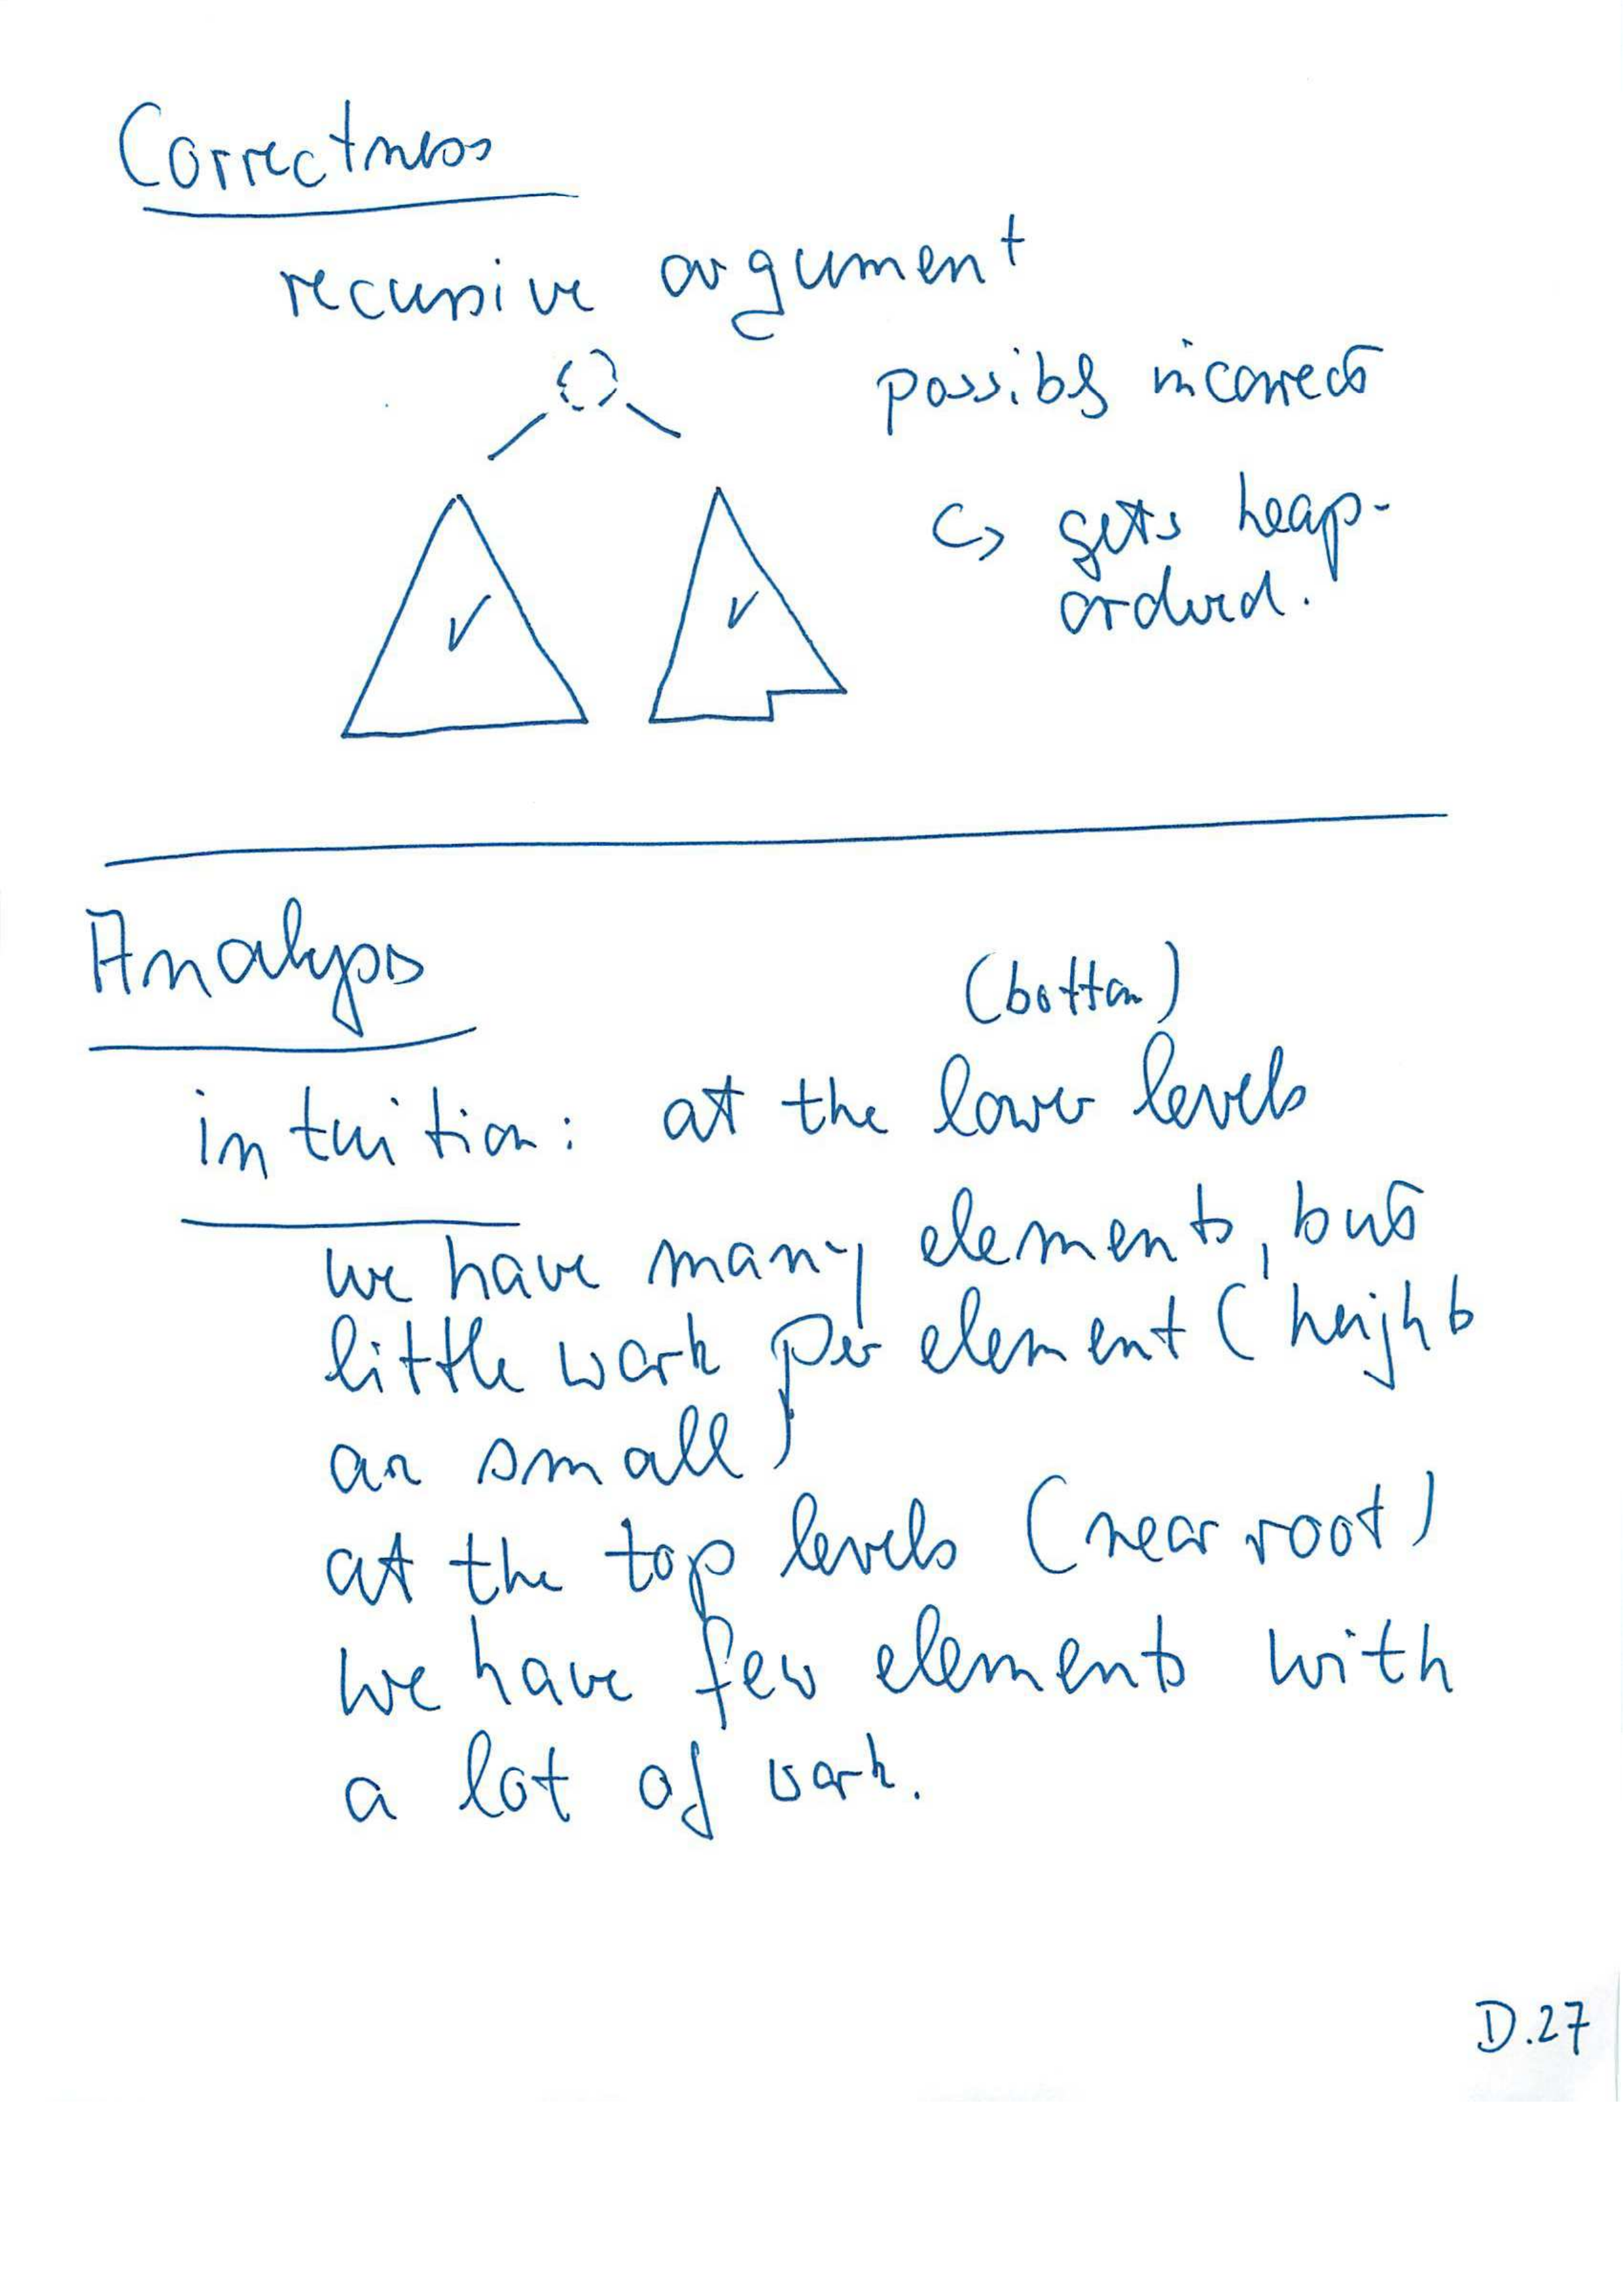 Correctness
recursive argument
possibly incorrect
↳ gets heap-
ordered.
Analysis
(bottom)
intuition: at the lower levels
we have many elements, but
little work per element (heights
are small)
at the top levels (near root)
we have few elements with
a lot of work.
D.27